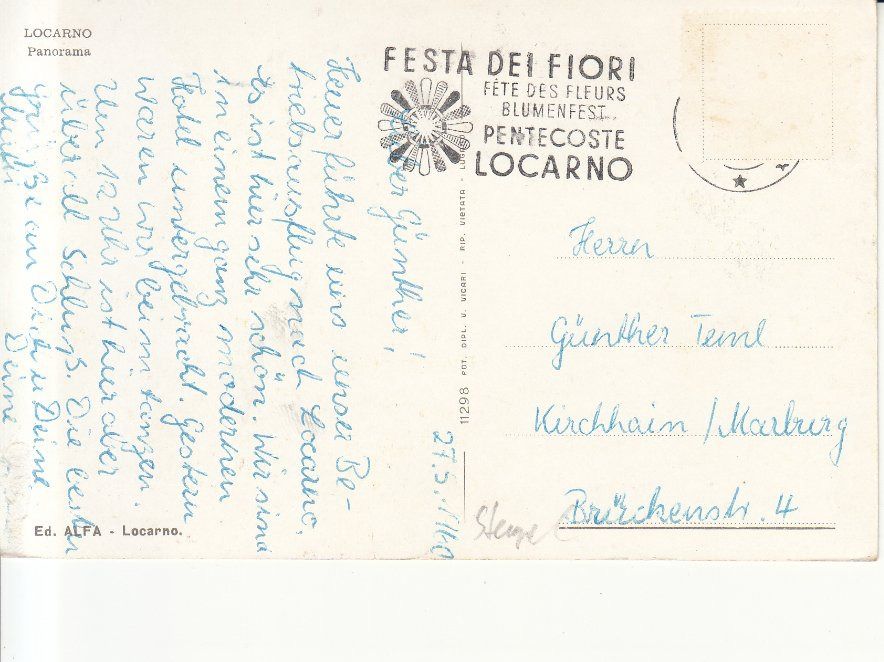 LOCARNO
Panorama
FESTA DEI FIORI
FÊTE DES FLEURS
BLUMENFEST
PENTECOSTE
LOCARNO
27.5.
Günther!
Heuer führte uns unser Be-
triebsausflug nach Locarno.
Es ist hier sehr schön. Wir sind
in einem ganz modernen
Hotel untergebracht. Gestern
waren wir beim tanzen.
Um 12 Uhr ist hier aber
überall Schluß. Die besten
Grüße an Dich u. Deine
Deine
Ed. ALFA - Locarno.
11298 FOT. DIPL. V. VICARI - RIP. VIETATA -
Herrn
Günther Teml
Kirchhain / Marburg
Brückenstr. 4